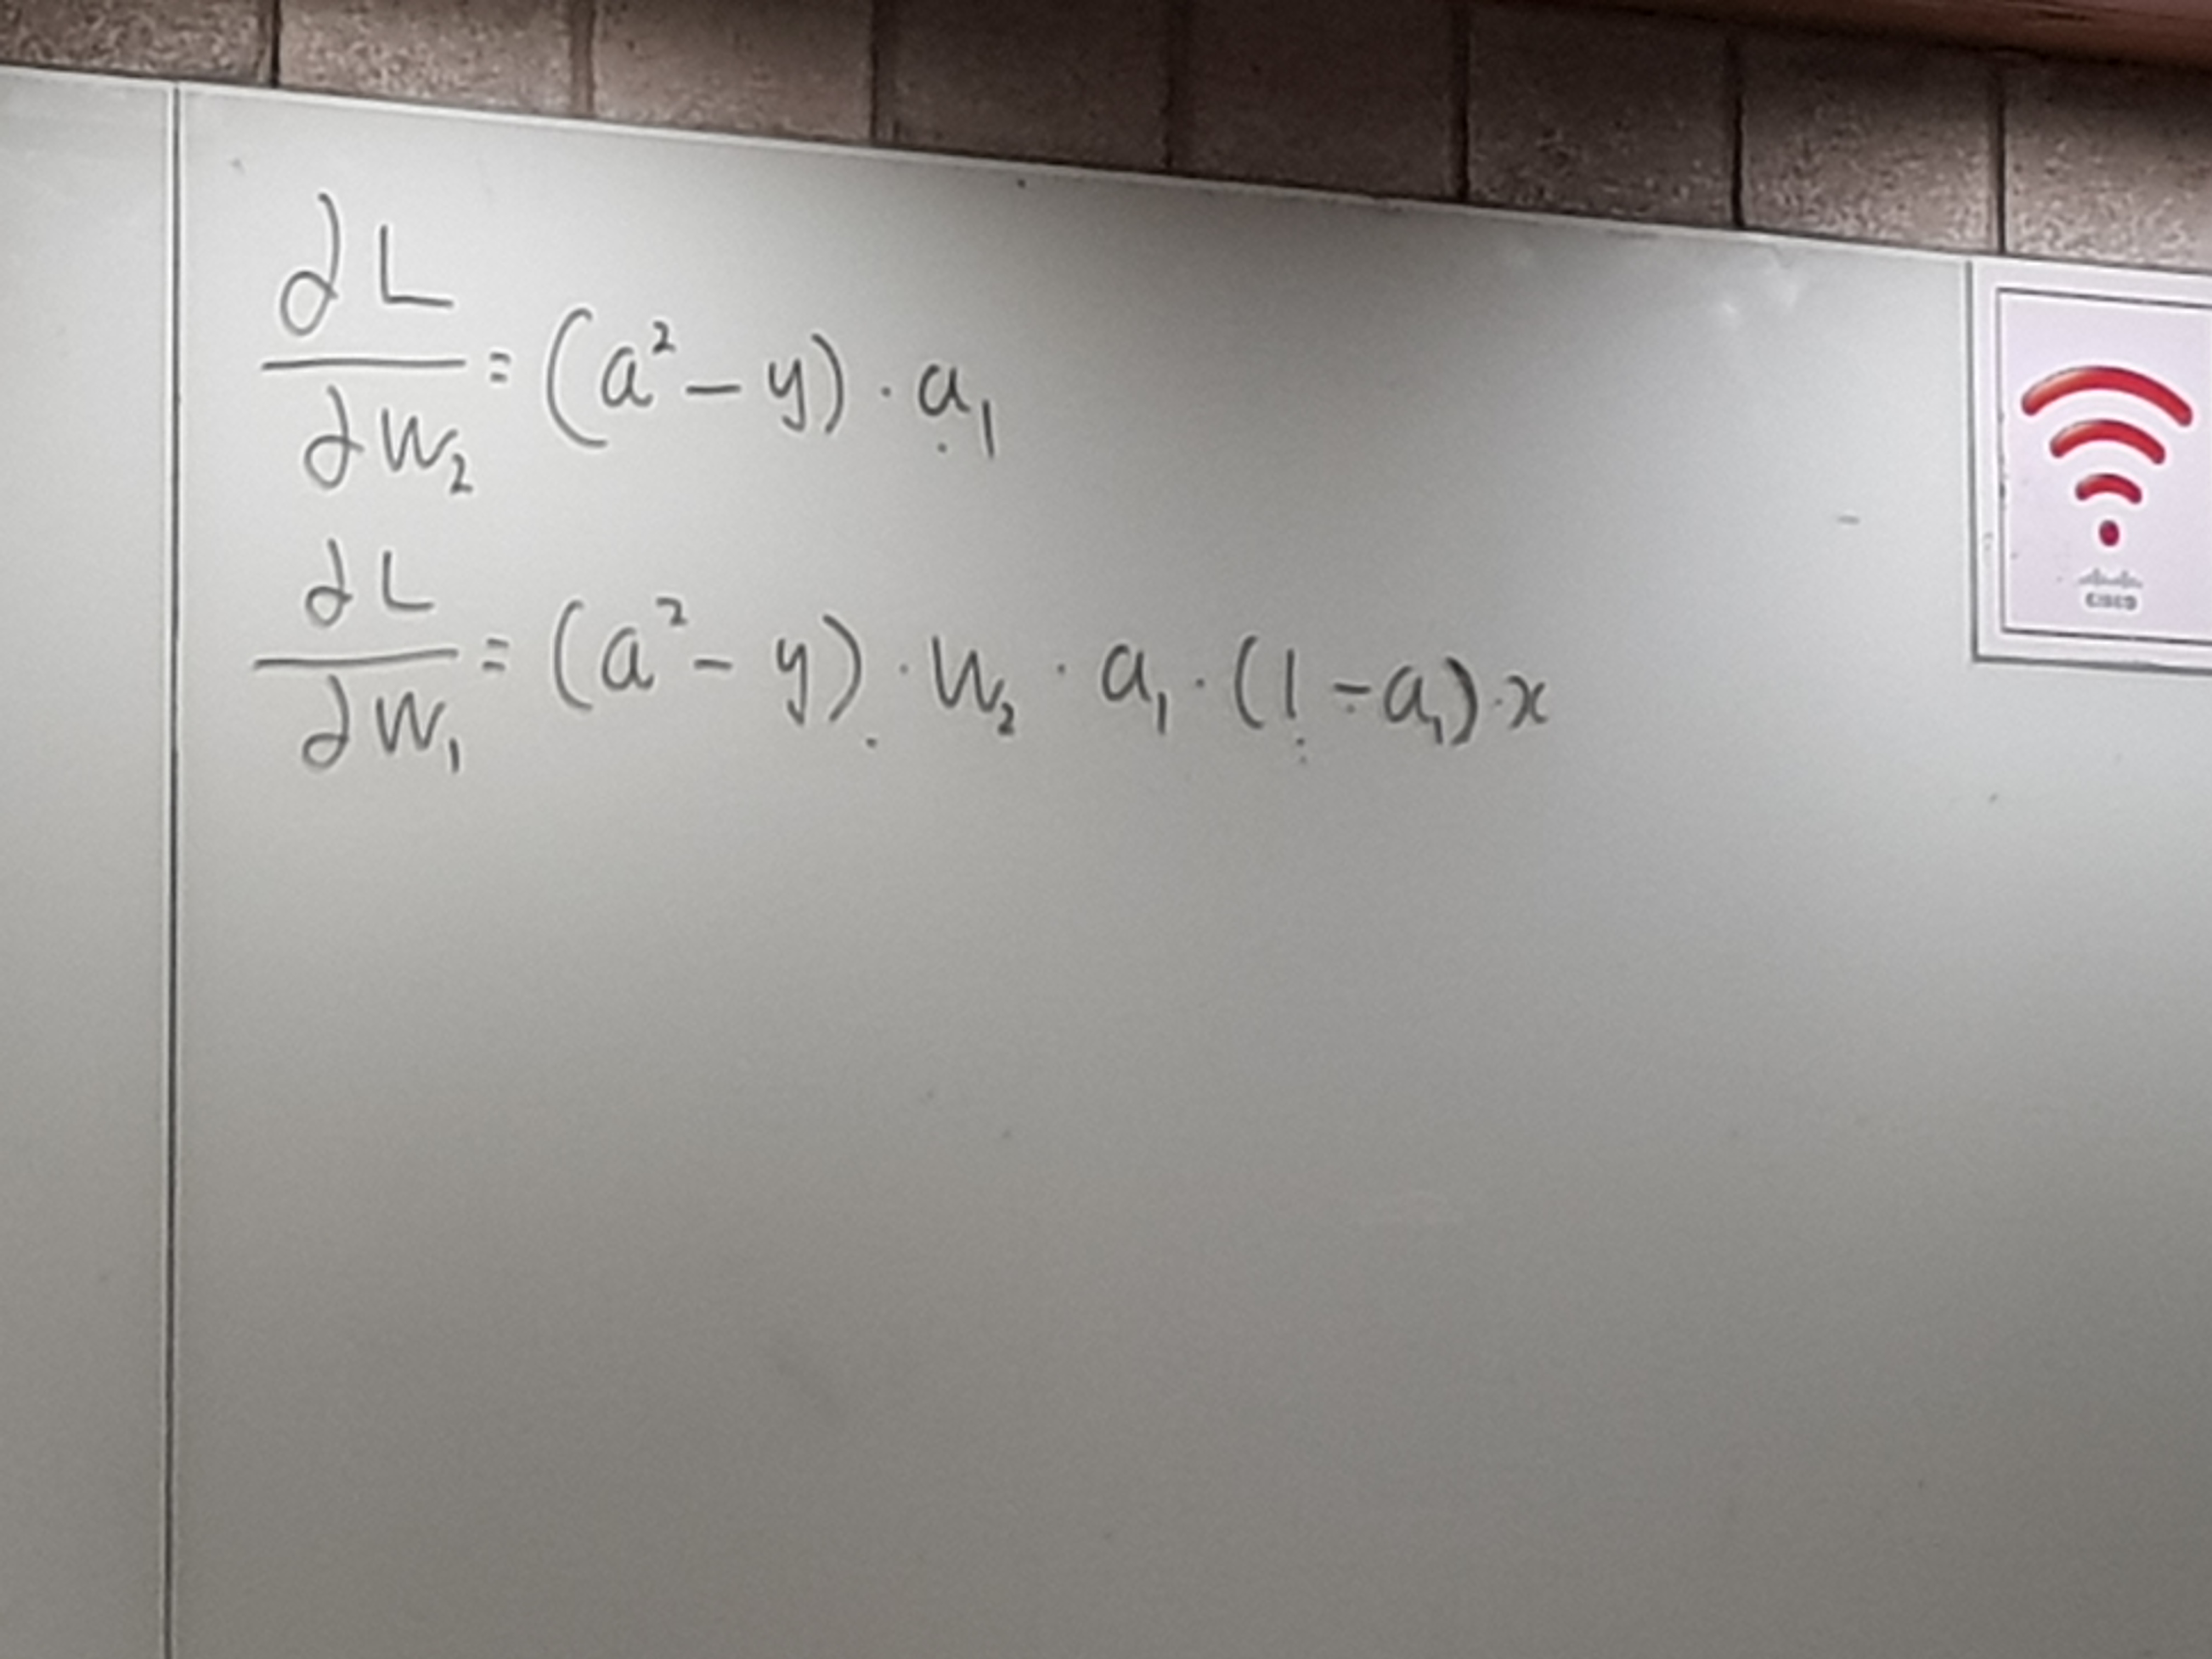 ∂L/∂W₂ = (a² - y) · a₁
∂L/∂W₁ = (a² - y) · W₂ · a₁ · (1 - a₁) · x
CISCO